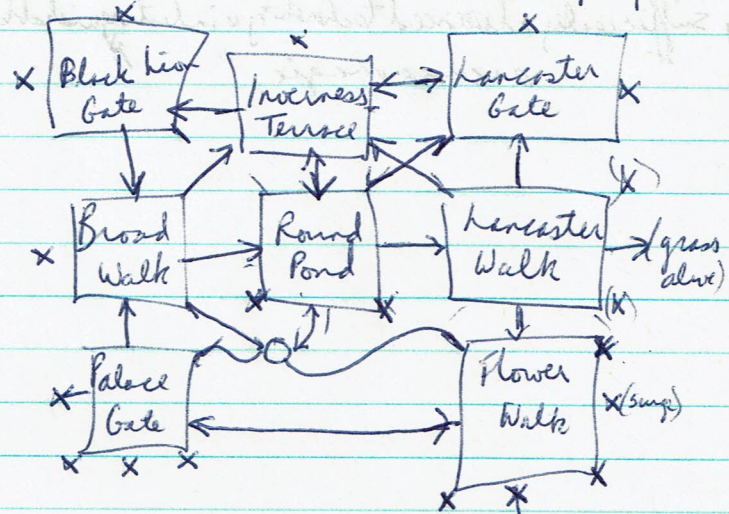 Black Lion
Gate
Inverness
Terrace
Lancaster
Gate
Broad
Walk
Round
Pond
Lancaster
Walk
(grass
alive)
Palace
Gate
Flower
Walk
(surge)
X
X
X
X
X
X
(X)
(X)
X
X
X
X
X
X
X
X
X
X
X